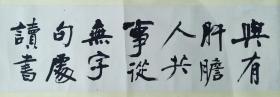 與有
肝膽
人共
事從
無字
句處
讀書